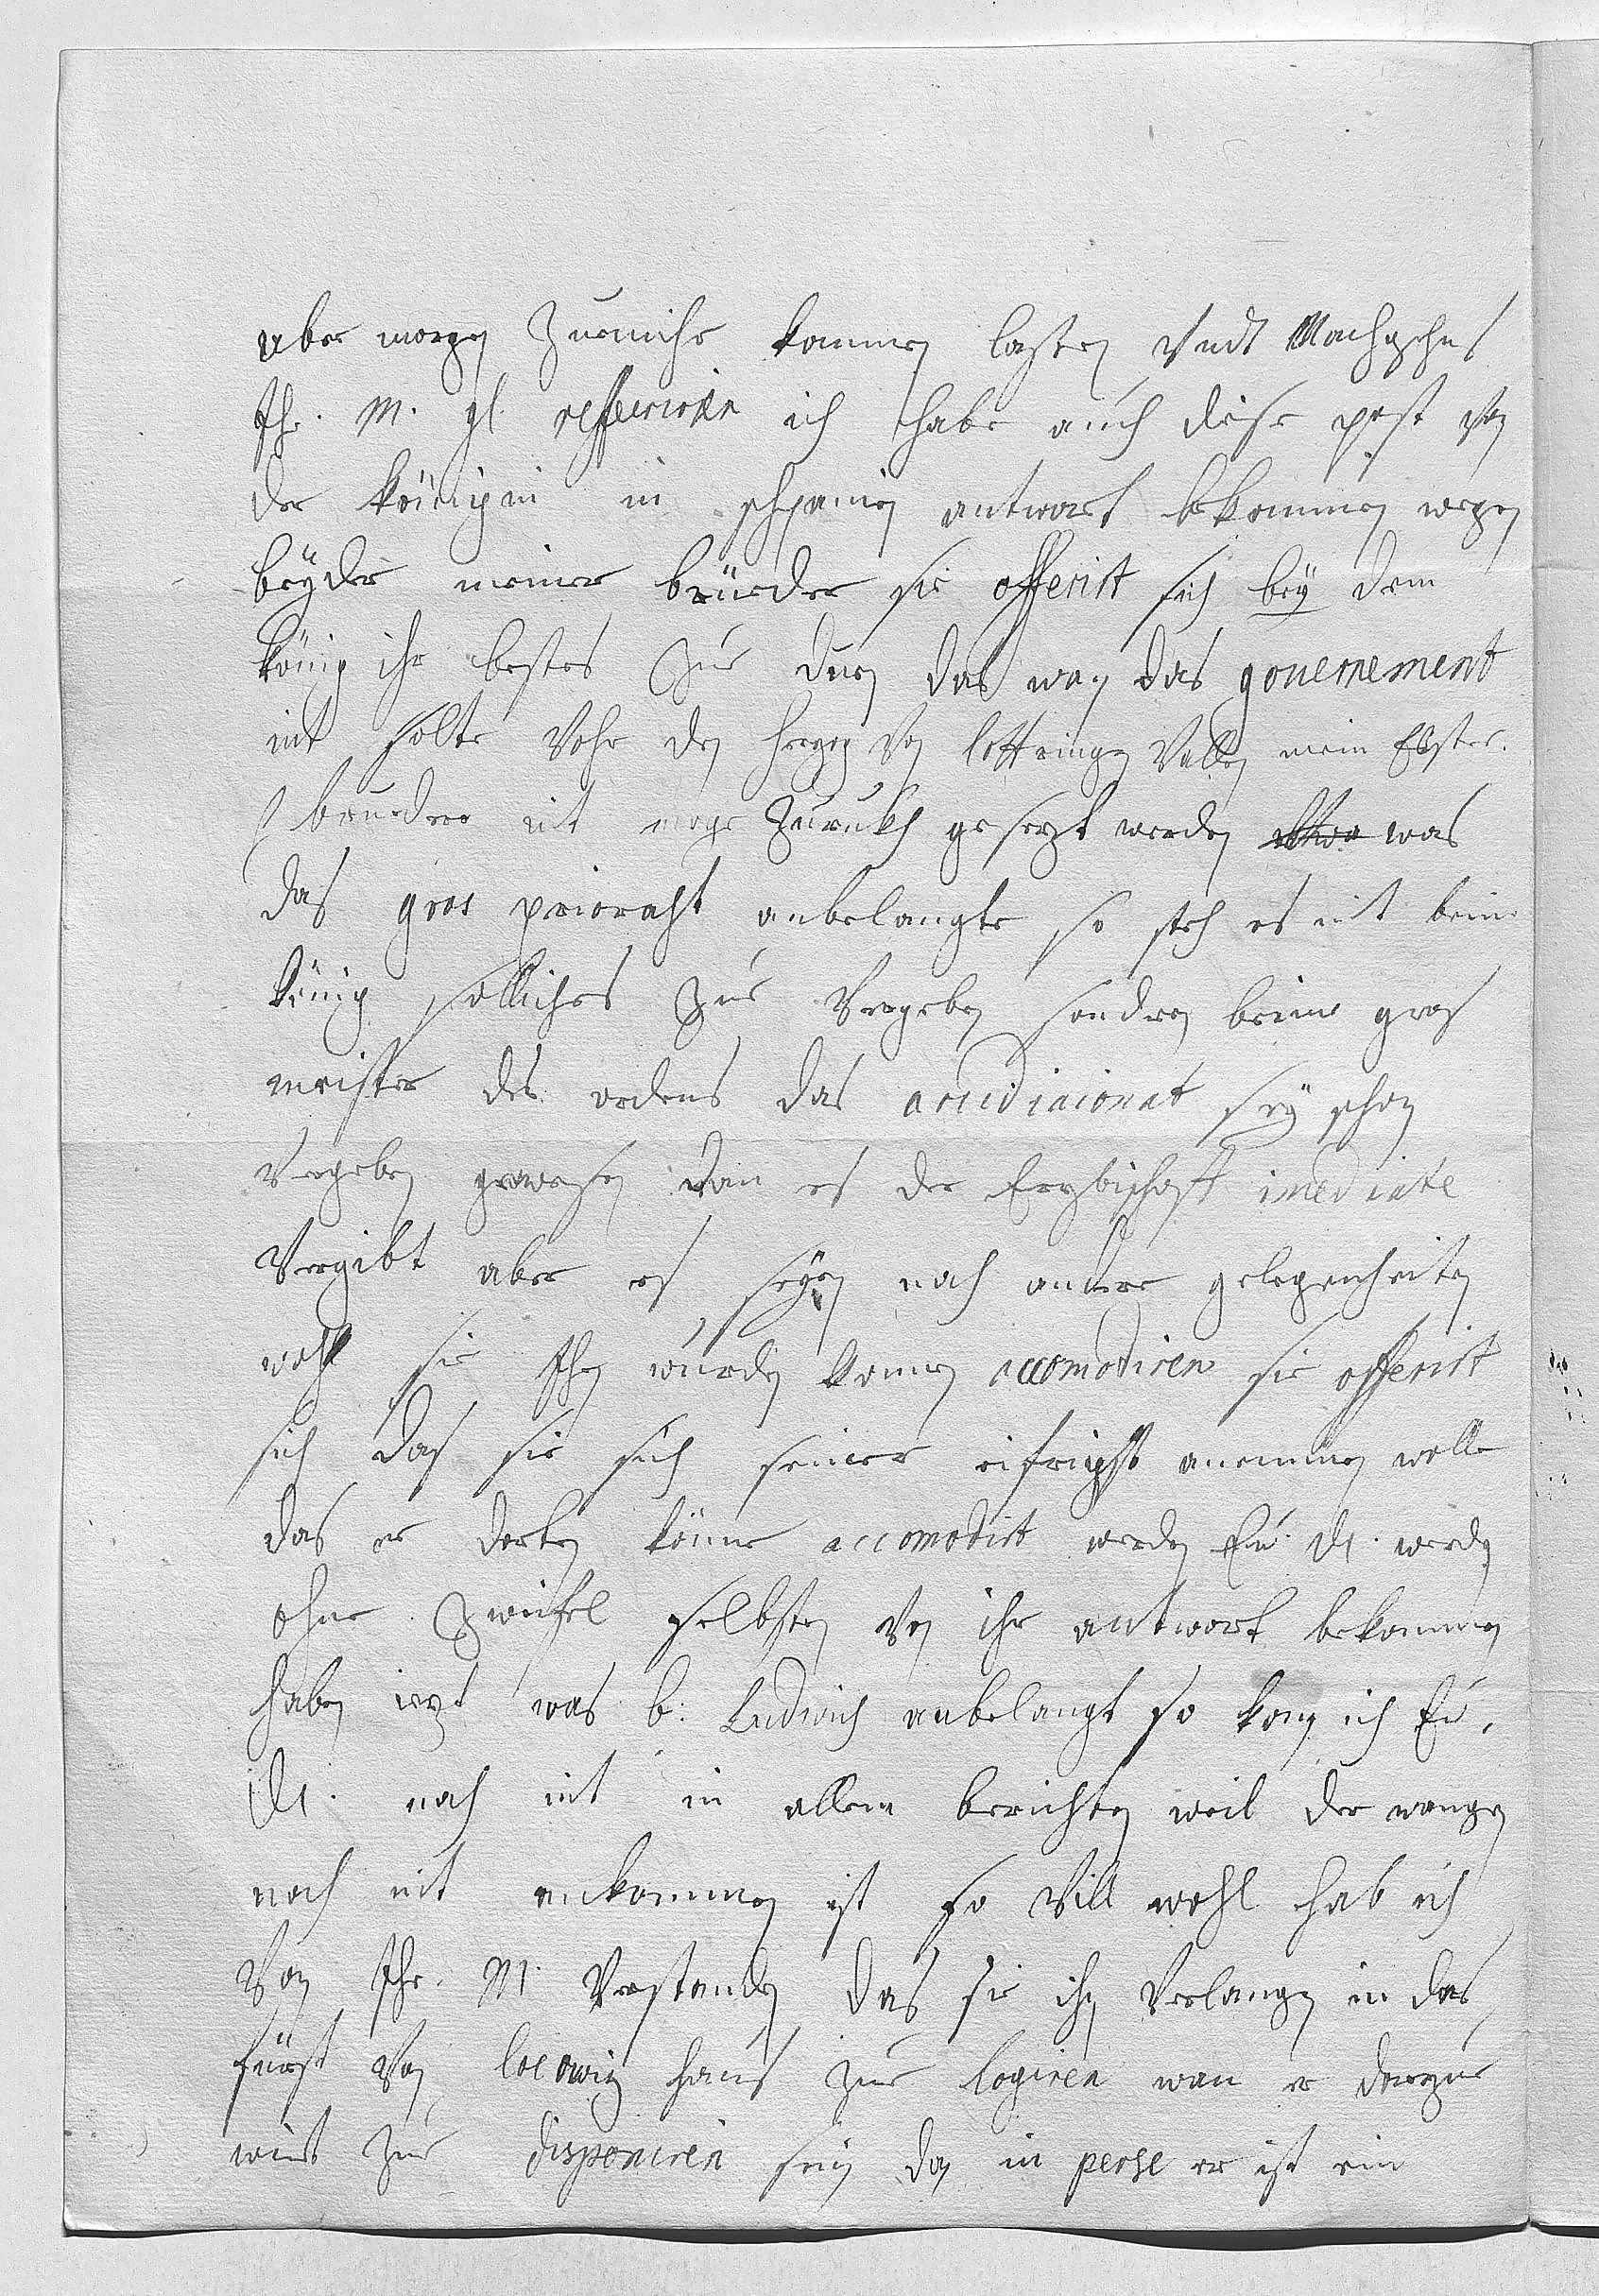 aber morgen zurückh kommen lassen undt Nachgehns
Ihr. M. gl. refferiren ich habe auch dise post von
der königin in schpanien antwort bekommen wegen
beyder meiner brüeder sie offerirt sich bey dem
könig ihr bestes zue duen das wan das gouernement
nit solte vohr den herzog von lottringen vallen mein Elster
bruederr nit möge zurukh gesezt werden was
das gros prioraht anbelangte so steh es nit beim
könig solliches zue vergeben sondren beim gros
meister des ordens das arcidiaconat sey schon
vergeben gewesen dan es der Erzbischoff imediate
vergibt aber es seyen noch andere gelegenheiten
wohl sie Ihn würden konnen accomodiren sie offerirt
sich das sie sich seiner eifrigst anemmen wolle
das er dorten könne accomodirt werden Eu. Dl. werden
ohne zweifel selbsten von ihr antwort bekommen
haben iezt was b. Ludwich anbelangt so kan ich Eu.
Dl. noch nit in allem berichten weil der wangen
noch nit ankommen ist so vill wohl hab ich
von Ihr. M. verstanden das sie ihn verlangen in das
fürst von locowiz haus zue logiren wan er darzue
wirt zue disponiren sein dan in perse er ist ein